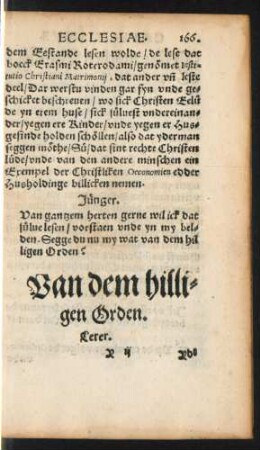 ECCLESIAE. 166.
dem Eestande lesen wolde/ de lese dat
boeck Erasmi Roterodami/ genömet Insti-
tutio Christiani Matrimonij, dat ander vn̄ leste
deel/ Dar werstu vinden gar fyn vnde ge-
schicket beschreuen/ wo sick Christen Eelü-
de yn erem huse/ sick sülvest vnderein an-
der/ yegen ere Kinder/ vnde yegen er Hus-
gesinde holden schöllen/ also dat yderman
seggen möthe/ Sü/ dat sint rechte Christen
lüde/ vnde van den andere minschen ein
Exempel der Christliken Oeconomien edder
Husholdinge billicken nemen.
Jünger.
Van gantzem herten gerne wil ick dat
sülue lesen/ vorstaen vnde yn my bel-
den. Segge du nu my wat van dem hil
ligen Orden?
Van dem hilli-
gen Orden.
Lerer.
X ij